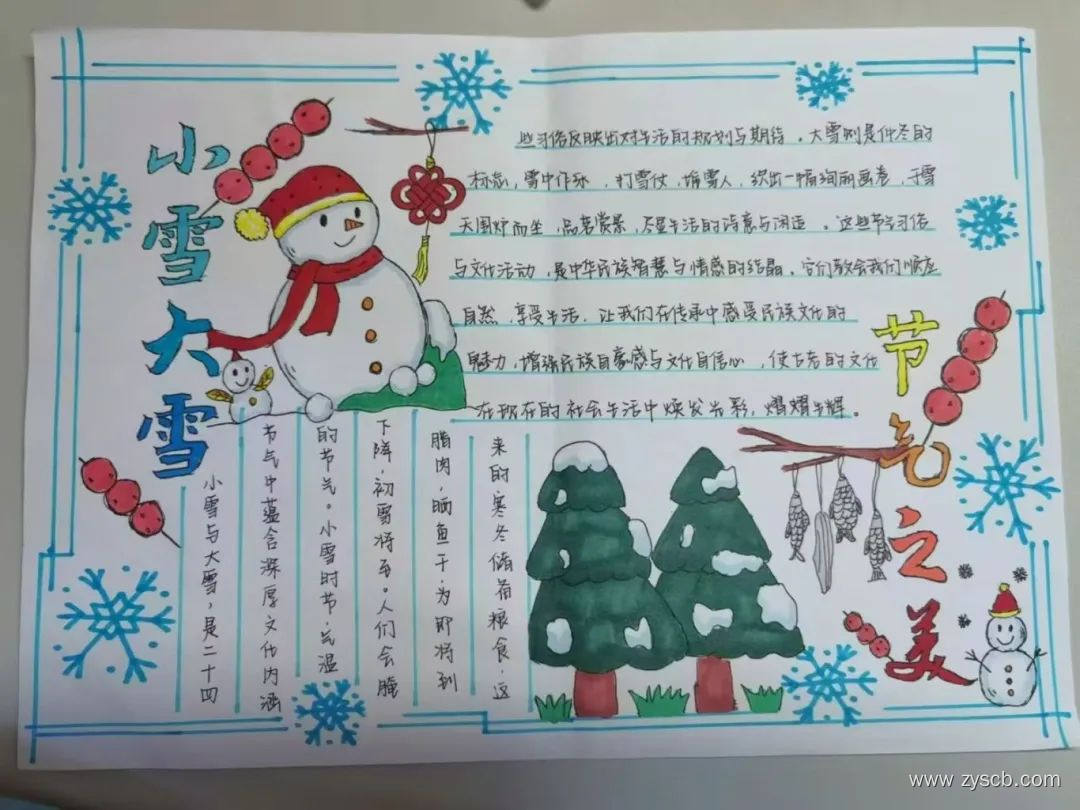 小雪大雪
小雪与大雪，是二十四
节气中蕴含深厚文化内涵
的节气。小雪时节，气温
下降，初雪将至。人们会腌
腊肉，晒鱼干，为即将到
来的寒冬储备粮食，这
些习俗反映出对生活的规划与期待。大雪则是仲冬的
标志，雪中作环，打雪仗，堆雪人，织出一幅绚丽画卷，于雪
天围炉而坐，品茗赏景，尽显生活的诗意与闲适。这些节气习俗
与文化活动，是中华民族智慧与情感的结晶。它们教会我们顺应
自然，享受生活，让我们在传承中感受民族文化的
魅力，增强民族自豪感与文化自信心，使古老的文化
在现在的社会生活中焕发光彩，熠熠生辉。
节气之美
www.zyscb.com